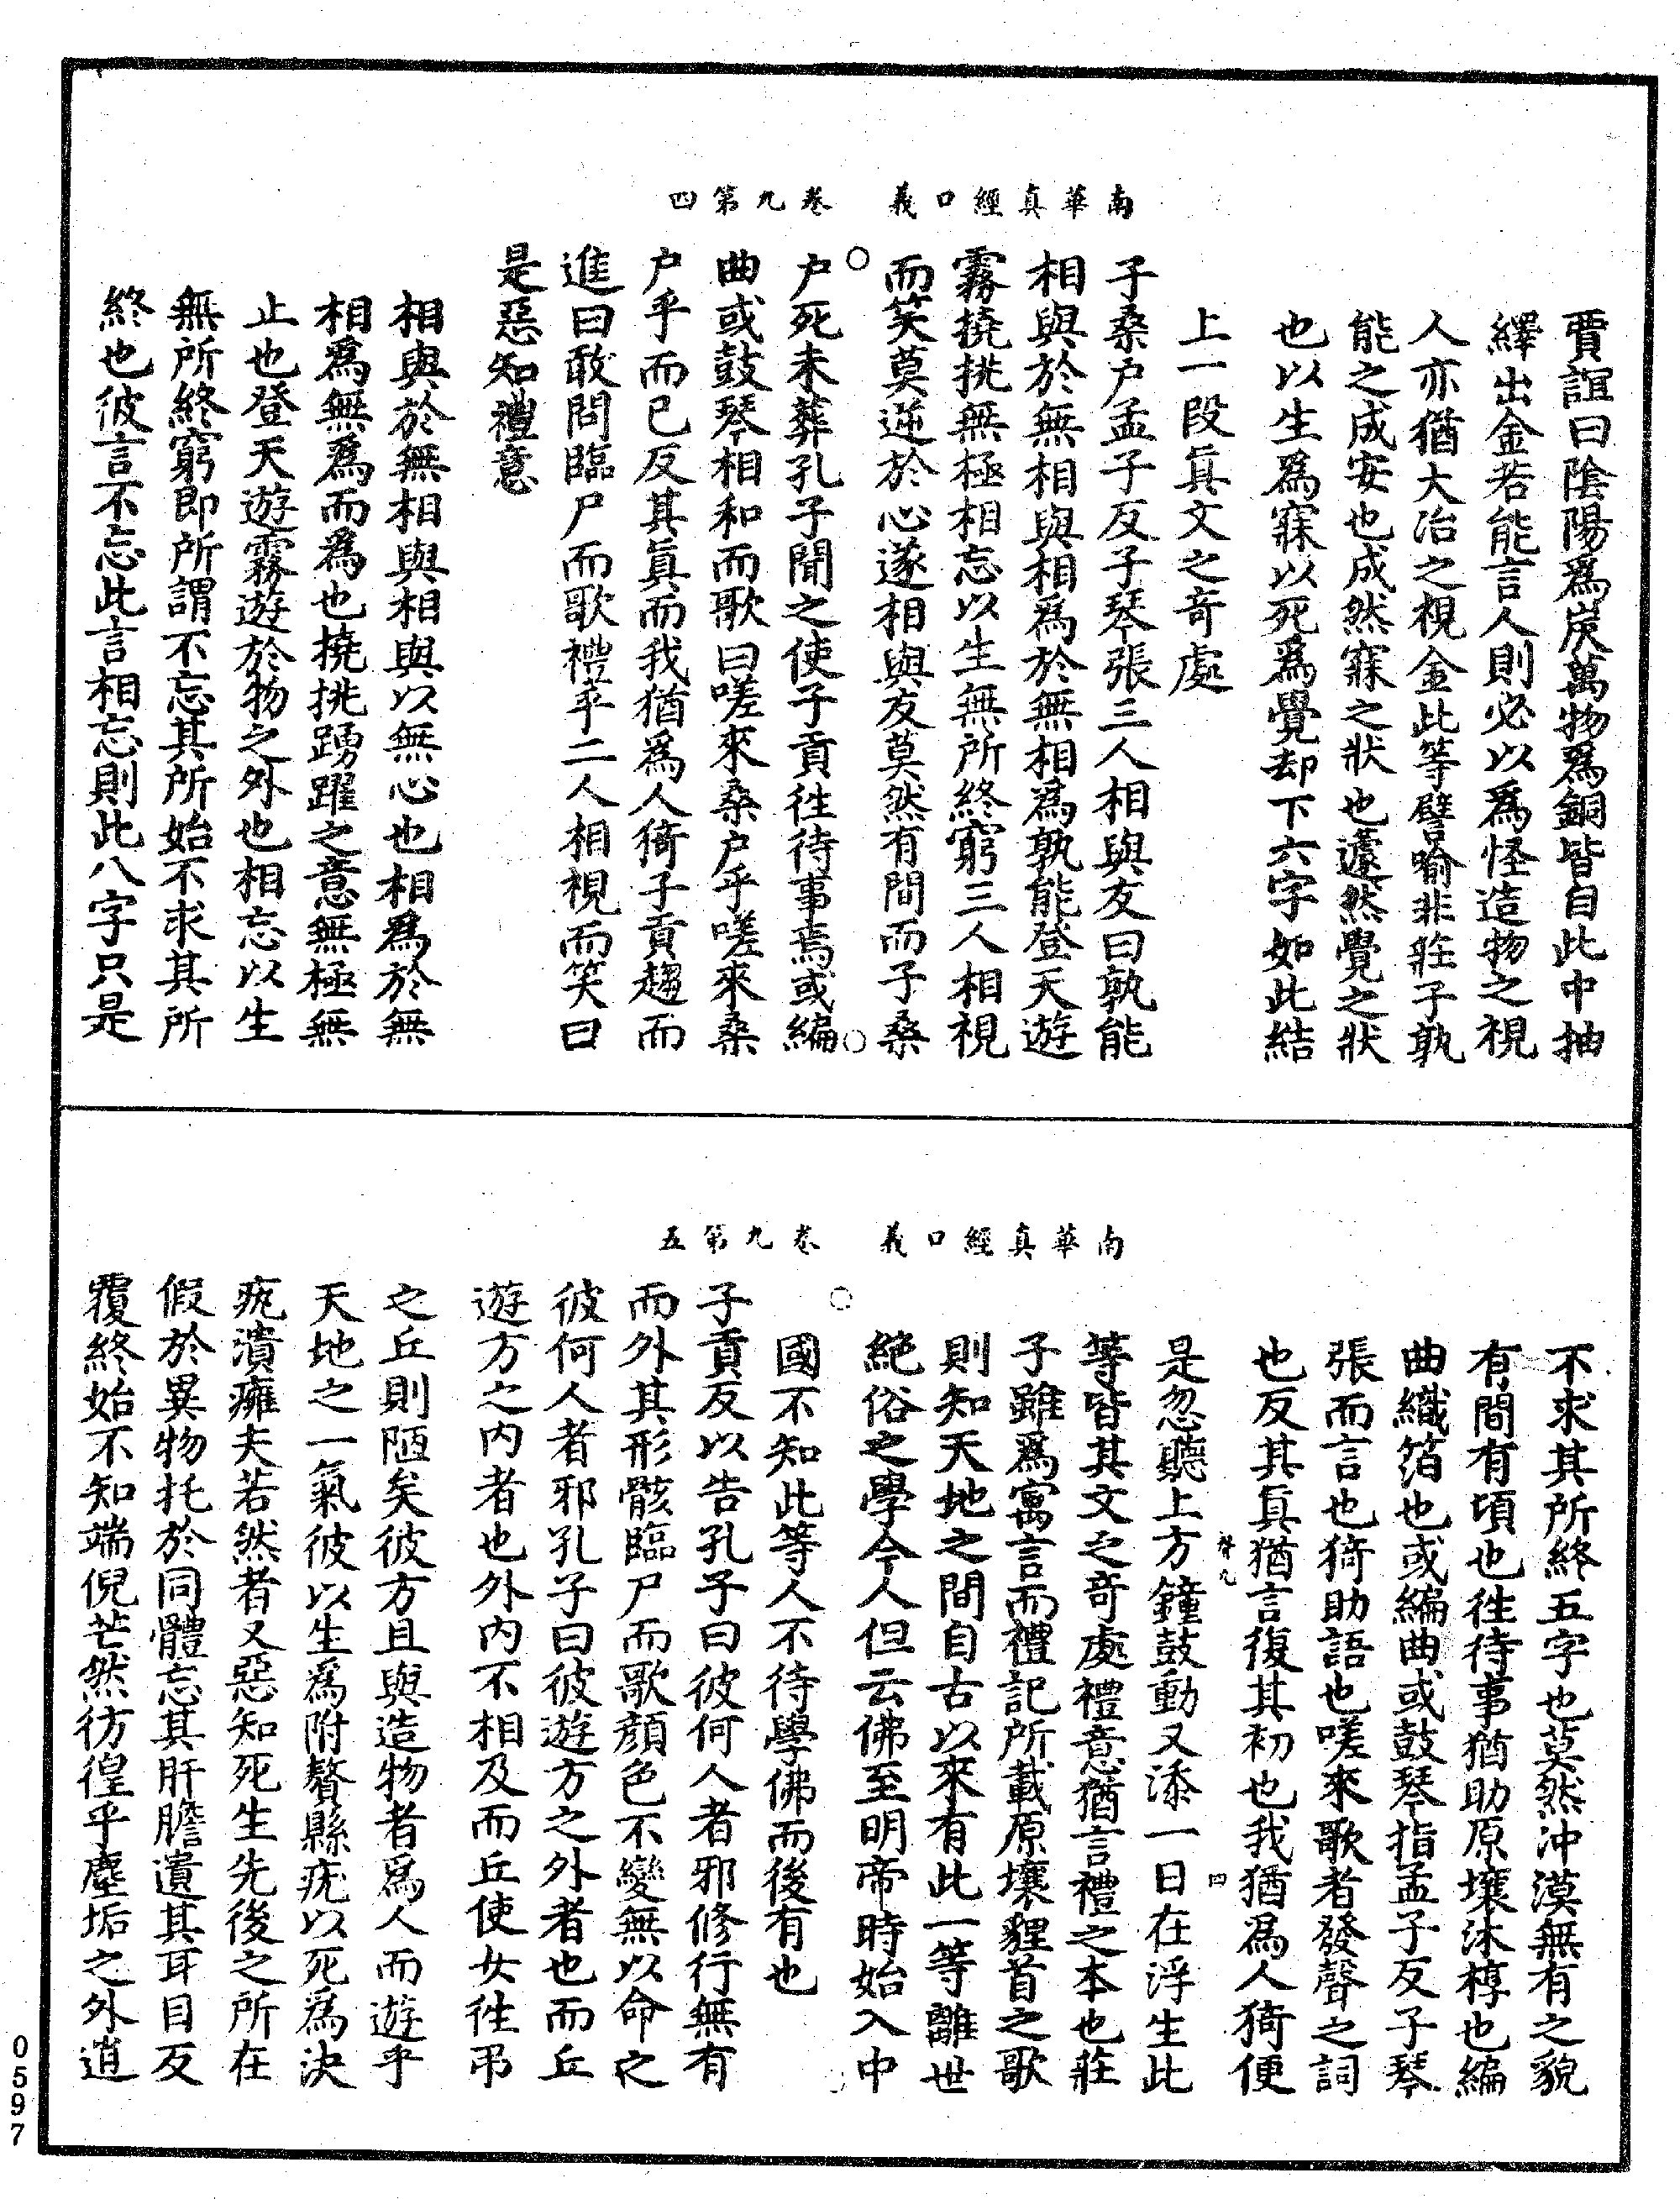 南華真經口義　卷九第四
賈誼曰陰陽爲炭萬物爲銅皆自此中抽
繹出金若能言人則必以爲怪造物之視
人亦猶大冶之視金此等譬喻非莊子孰
能之成安也成然寐之狀也蘧然覺之狀
也以生爲寐以死爲覺却下六字如此結
上一段眞文之奇處
子桑户孟子反子琴張三人相與友曰孰能
相與於無相與相爲於無相爲孰能登天遊
霧撓挑無極相忘以生無所終窮三人相視
而笑莫逆於心遂相與友莫然有間而子桑
户死未葬孔子聞之使子貢往待事焉或編
曲或鼓琴相和而歌曰嗟來桑户乎嗟來桑
户乎而已反其眞而我猶爲人猗子貢趨而
進曰敢問臨尸而歌禮乎二人相視而笑曰
是惡知禮意
相與於無相與相與以無心也相爲於無
相爲無爲而爲也撓挑踴躍之意無極無
止也登天遊霧遊於物之外也相忘以生
無所終窮即所謂不忘其所始不求其所
終也彼言不忘此言相忘則此八字只是
南華真經口義　卷九第五
不求其所終五字也莫然沖漠無有之貌
有間有頃也往待事猶助原壤沐椁也編
曲織箔也或編曲或鼓琴指孟子反子琴
張而言也猗助語也嗟來歌者發聲之詞
也反其眞猶言復其初也我猶爲人猗便
聲九　四
是忽聽上方鐘鼓動又添一日在浮生此
等皆其文之奇處禮意猶言禮之本也莊
子雖爲寓言而禮記所載原壤貍首之歌
則知天地之間自古以來有此一等離世
絶俗之學今人但云佛至明帝時始入中
國不知此等人不待學佛而後有也
子貢反以告孔子曰彼何人者邪修行無有
而外其形骸臨尸而歌顔色不變無以命之
彼何人者邪孔子曰彼遊方之外者也而丘
遊方之内者也外内不相及而丘使女往弔
之丘則陋矣彼方且與造物者爲人而遊乎
天地之一氣彼以生爲附贅縣疣以死爲决
疣潰癰夫若然者又惡知死生先後之所在
假於異物托於同體忘其肝膽遺其耳目反
覆終始不知端倪芒然彷徨乎塵垢之外逍
0597